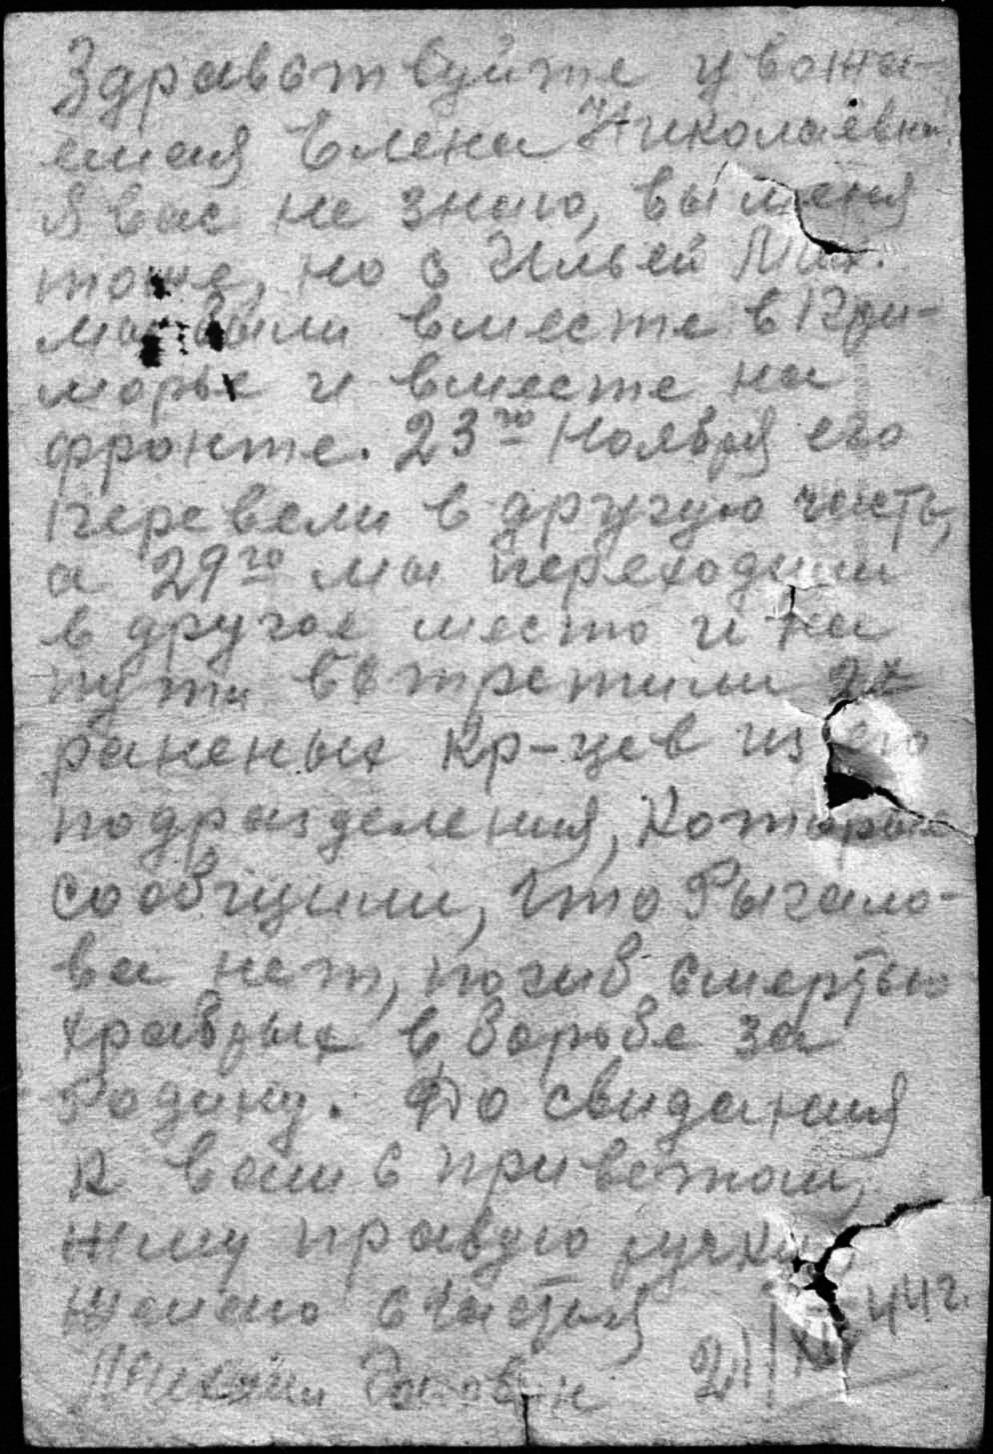 Здравствуйте уважа-
емая Елена Николаевна.
Я вас не знаю, вы меня
тоже, но с Ильей Мих.
мы были вместе в При-
морье и вместе на
фронте. 23го ноября его
перевели в другую часть,
а 29го мы переходили
в другое место и на
пути встретили 2х
раненых кр-цев из его
подразделения, которые
сообщили, что Рыгало-
ва нет, погиб смертью
храбрых в борьбе за
Родину. До свидания
к вам с приветом,
жму правую ручку,
желаю счастья
Михаил 44г.